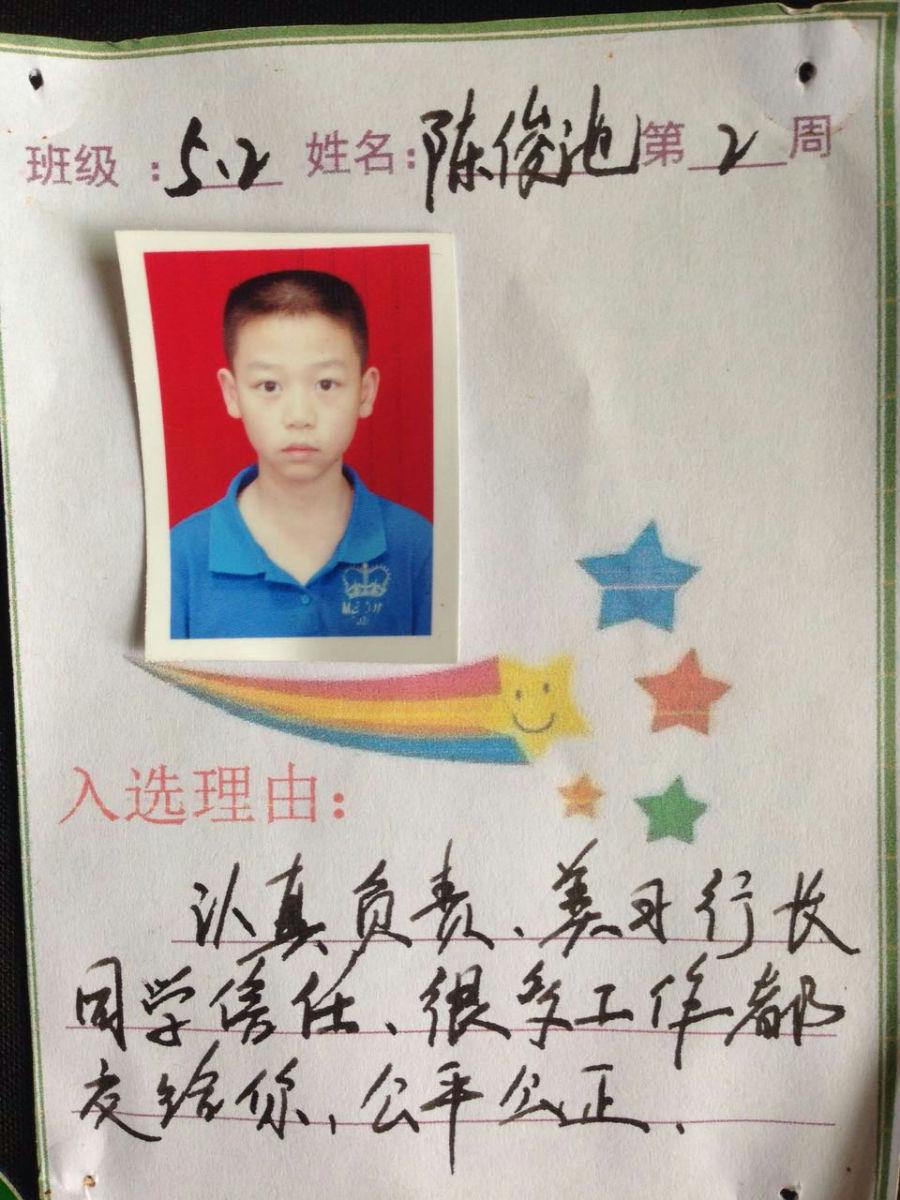 班级：5.2 姓名：陈俊池 第 2 周
入选理由：
认真负责、行长
同学信任、很多工作都
交给你，公平公正、